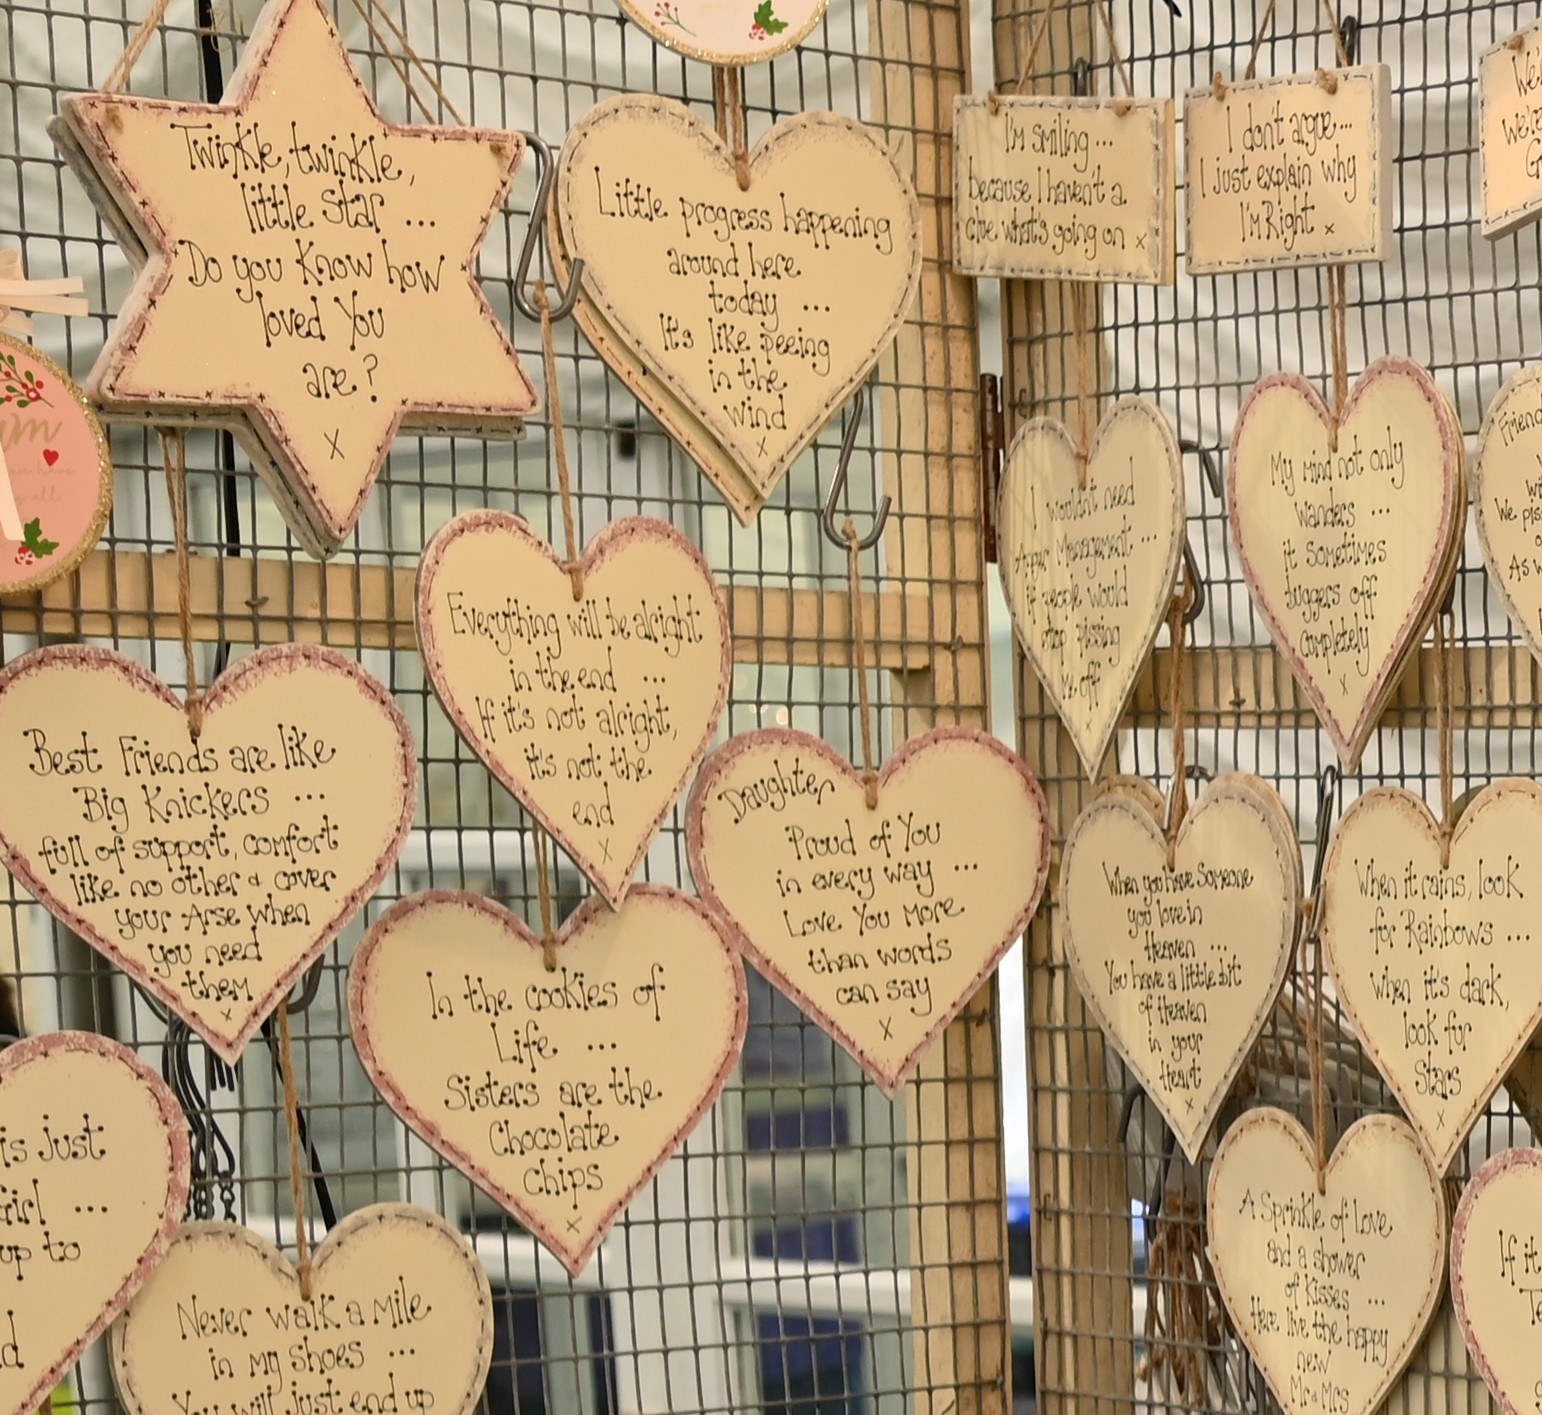 Twinkle, twinkle,
little star ...
Do you know how
loved You
are?
x
Little progress happening
around here
today ...
It's like peeing
in the
wind
x
I'm smiling ...
because I haven't a
clue what's going on x
I don't argue...
I just explain why
I'm Right x
We'
we're
G
I wouldn't need
Anger Management ...
if people would
stop pissing
Me off
My mind not only
wanders ...
it sometimes
buggers off
completely
x
Friend
wi
We pi
As w
Everything will be alright
in the end ...
If it's not alright,
it's not the
end
x
Best Friends are like
Big Knickers ...
full of support, comfort
like no other & cover
your Arse when
you need
them
x
Daughter,
Proud of You
in every way ...
Love You More
than words
can say
x
When you have Someone
you love in
Heaven ...
You have a little bit
of Heaven
in your
Heart
x
When it rains, look
for Rainbows ...
when it's dark,
look for
Stars
x
In the cookies of
Life ...
Sisters are the
Chocolate
Chips
x
is just
irl ...
up to
d
Never walk a Mile
in my shoes ...
You will just end up
A Sprinkle of Love
and a shower
of Kisses ...
Here live the happy
new
Mr & Mrs
If it
Te